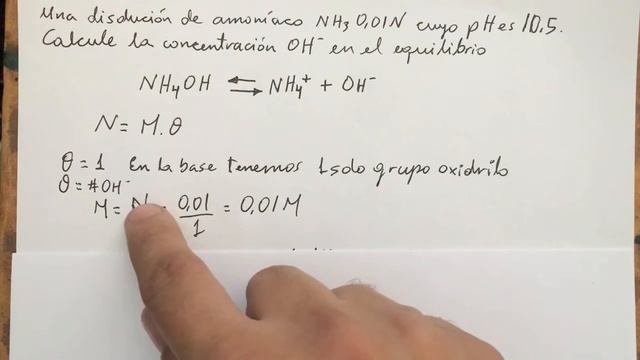 Una disolución de amoníaco NH3 0,01N cuyo pH es 10.5.
Calcule la concentración OH⁻ en el equilibrio
NH4OH ⇌ NH4⁺ + OH⁻
N = M.θ
θ = 1 En la base tenemos 1 solo grupo oxidrilo
θ = #OH⁻
M = N = 0,01/1 = 0,01M